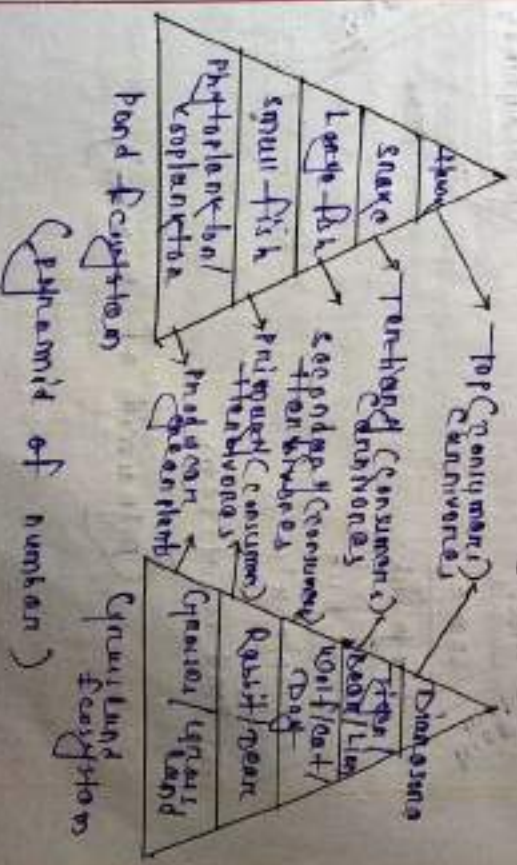 snake
Large fish
small fish
phytoplankton/
zooplankton
pond Ecosystem
Top (consumer)
carnivores
Tertiary (consumers)
carnivores
secondary (consumer)
primary (consumer)
Herbivores
producer
Green plants
Dianosora
Tiger/
Bear/Lion
Wolf/cat/
Dog
Rabit/Dear
Grasses/Grass
land
Grassland
Ecosystem
(pyramid of number)